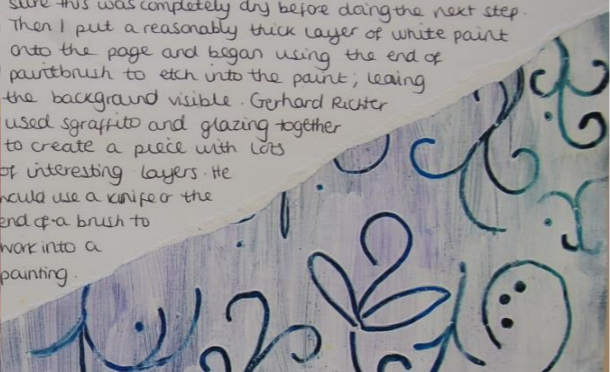 sure this was completely dry before doing the next step.
Then I put a reasonably thick layer of white paint
onto the page and began using the end of
paintbrush to etch into the paint; leaing
the background visible. Gerhard Richter
used sgraffito and glazing together
to create a piece with lots
of interesting layers. He
would use a knife or the
end of a brush to
work into a
painting.